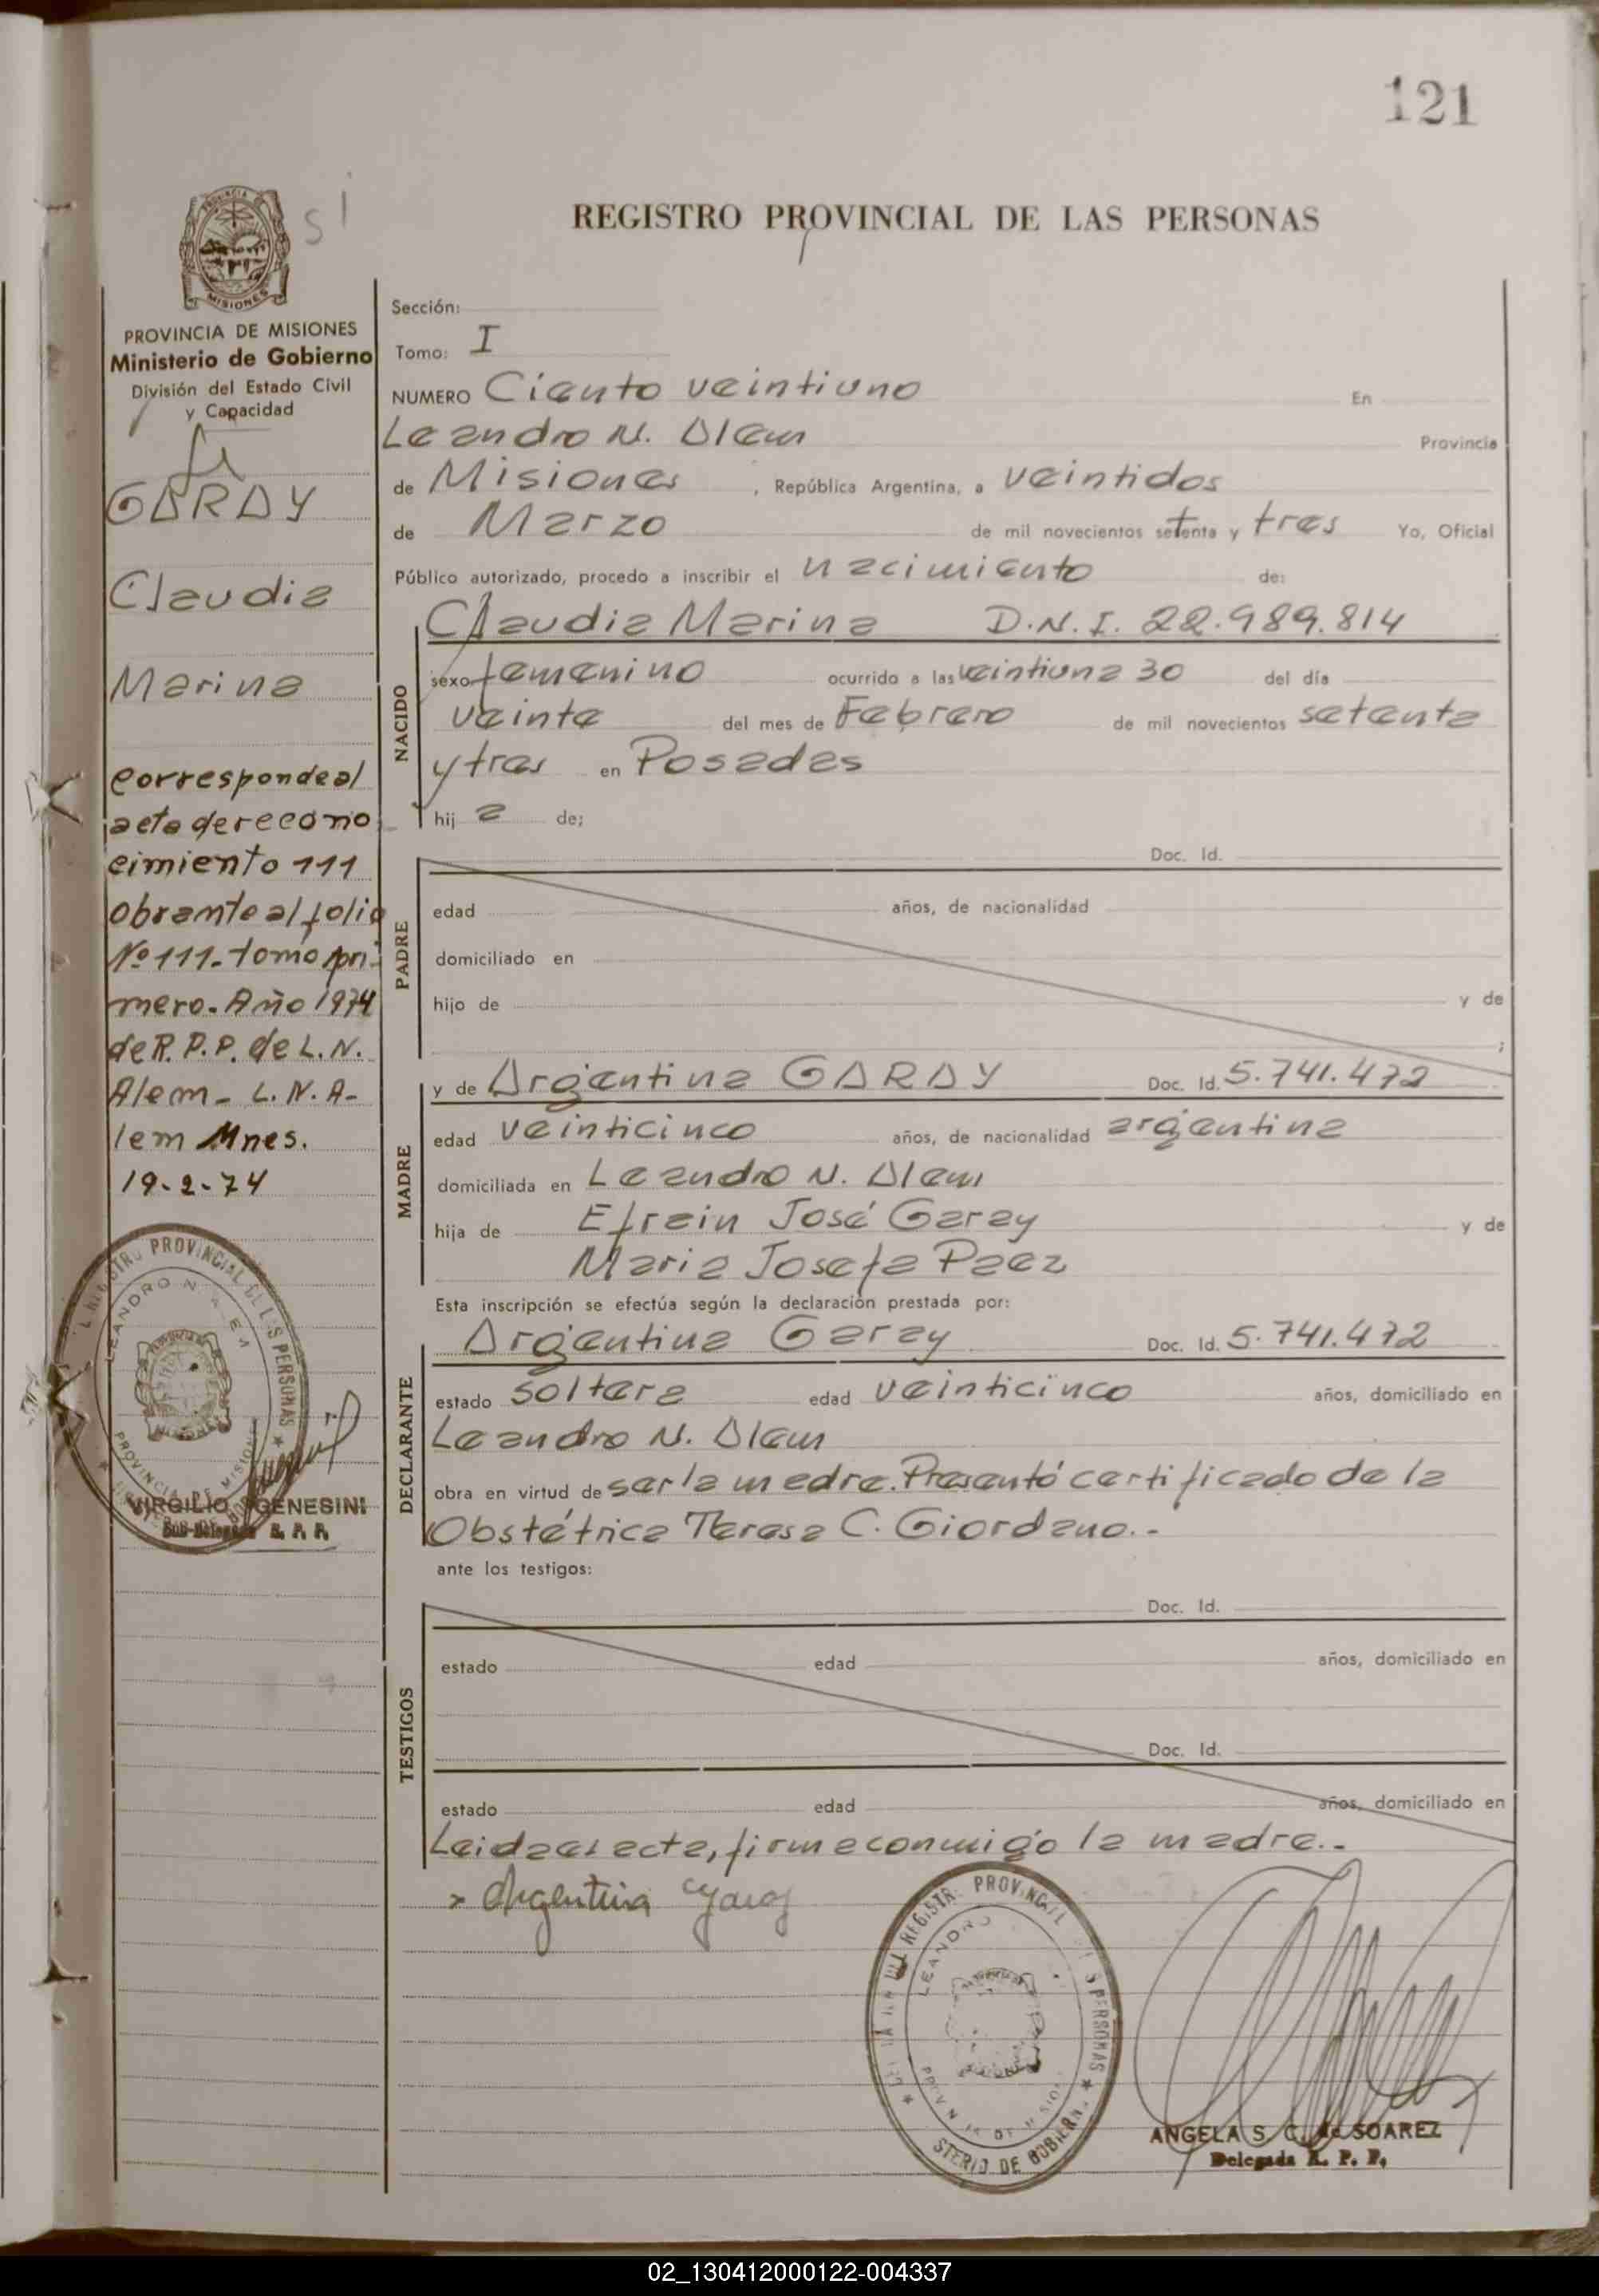 121
si
REGISTRO PROVINCIAL DE LAS PERSONAS
PROVINCIA DE
MISIONES
PROVINCIA DE MISIONES
Ministerio de Gobierno
División del Estado Civil
y Capacidad
GARAY
Claudia
Marina
corresponde al
acta de recono
cimiento 111
obrante al folio
Nº 111-tomo pri
mero. Año 1974
de R.P.P. de L.N.
Alem - L.N.A-
lem Mnes.
19-2-74
REGISTRO PROVINCIAL DE LAS PERSONAS
LEANDRO N. ALEM
PROVINCIA DE MISIONES
VIRGILIO GENESINI
Sub-Delegado R. P. P.
Sección:
Tomo: I
NUMERO Ciento veintiuno En
Leandro N. Alem Provincia
de Misiones , República Argentina, a veintidos
de Marzo de mil novecientos setenta y tres Yo, Oficial
Público autorizado, procedo a inscribir el nacimiento de:
NACIDO
Claudia Marina D.N.I. 22.989.814
sexo femenino ocurrido a las veintiuna 30 del día
veinte del mes de Febrero de mil novecientos setenta
y tres en Posadas
hij a de;
PADRE
Doc. Id.
edad años, de nacionalidad
domiciliado en
hijo de y de
;
MADRE
y de Argentina GARAY Doc. Id. 5.741.472
edad veinticinco años, de nacionalidad argentina
domiciliada en Leandro N. Alem
hija de Efrain José Garay y de
Maria Josefa Paez
Esta inscripción se efectúa según la declaración prestada por:
DECLARANTE
Argentina Garay Doc. Id. 5.741.472
estado soltera edad veinticinco años, domiciliado en
Leandro N. Alem
obra en virtud de ser la madre. Presentó certificado de la
Obstétrica Teresa C. Giordano.-
ante los testigos:
TESTIGOS
Doc. Id.
estado edad años, domiciliado en
Doc. Id.
estado edad años, domiciliado en
Leida el acta, firma conmigo la madre.-
x Argentina Garay
REGISTR PROVINCIAL PERSONAS
LEANDRO
STERIO DE GOBIERN
ANGELA S. C. de SOAREZ
Delegada R. P. P.
02_130412000122-004337